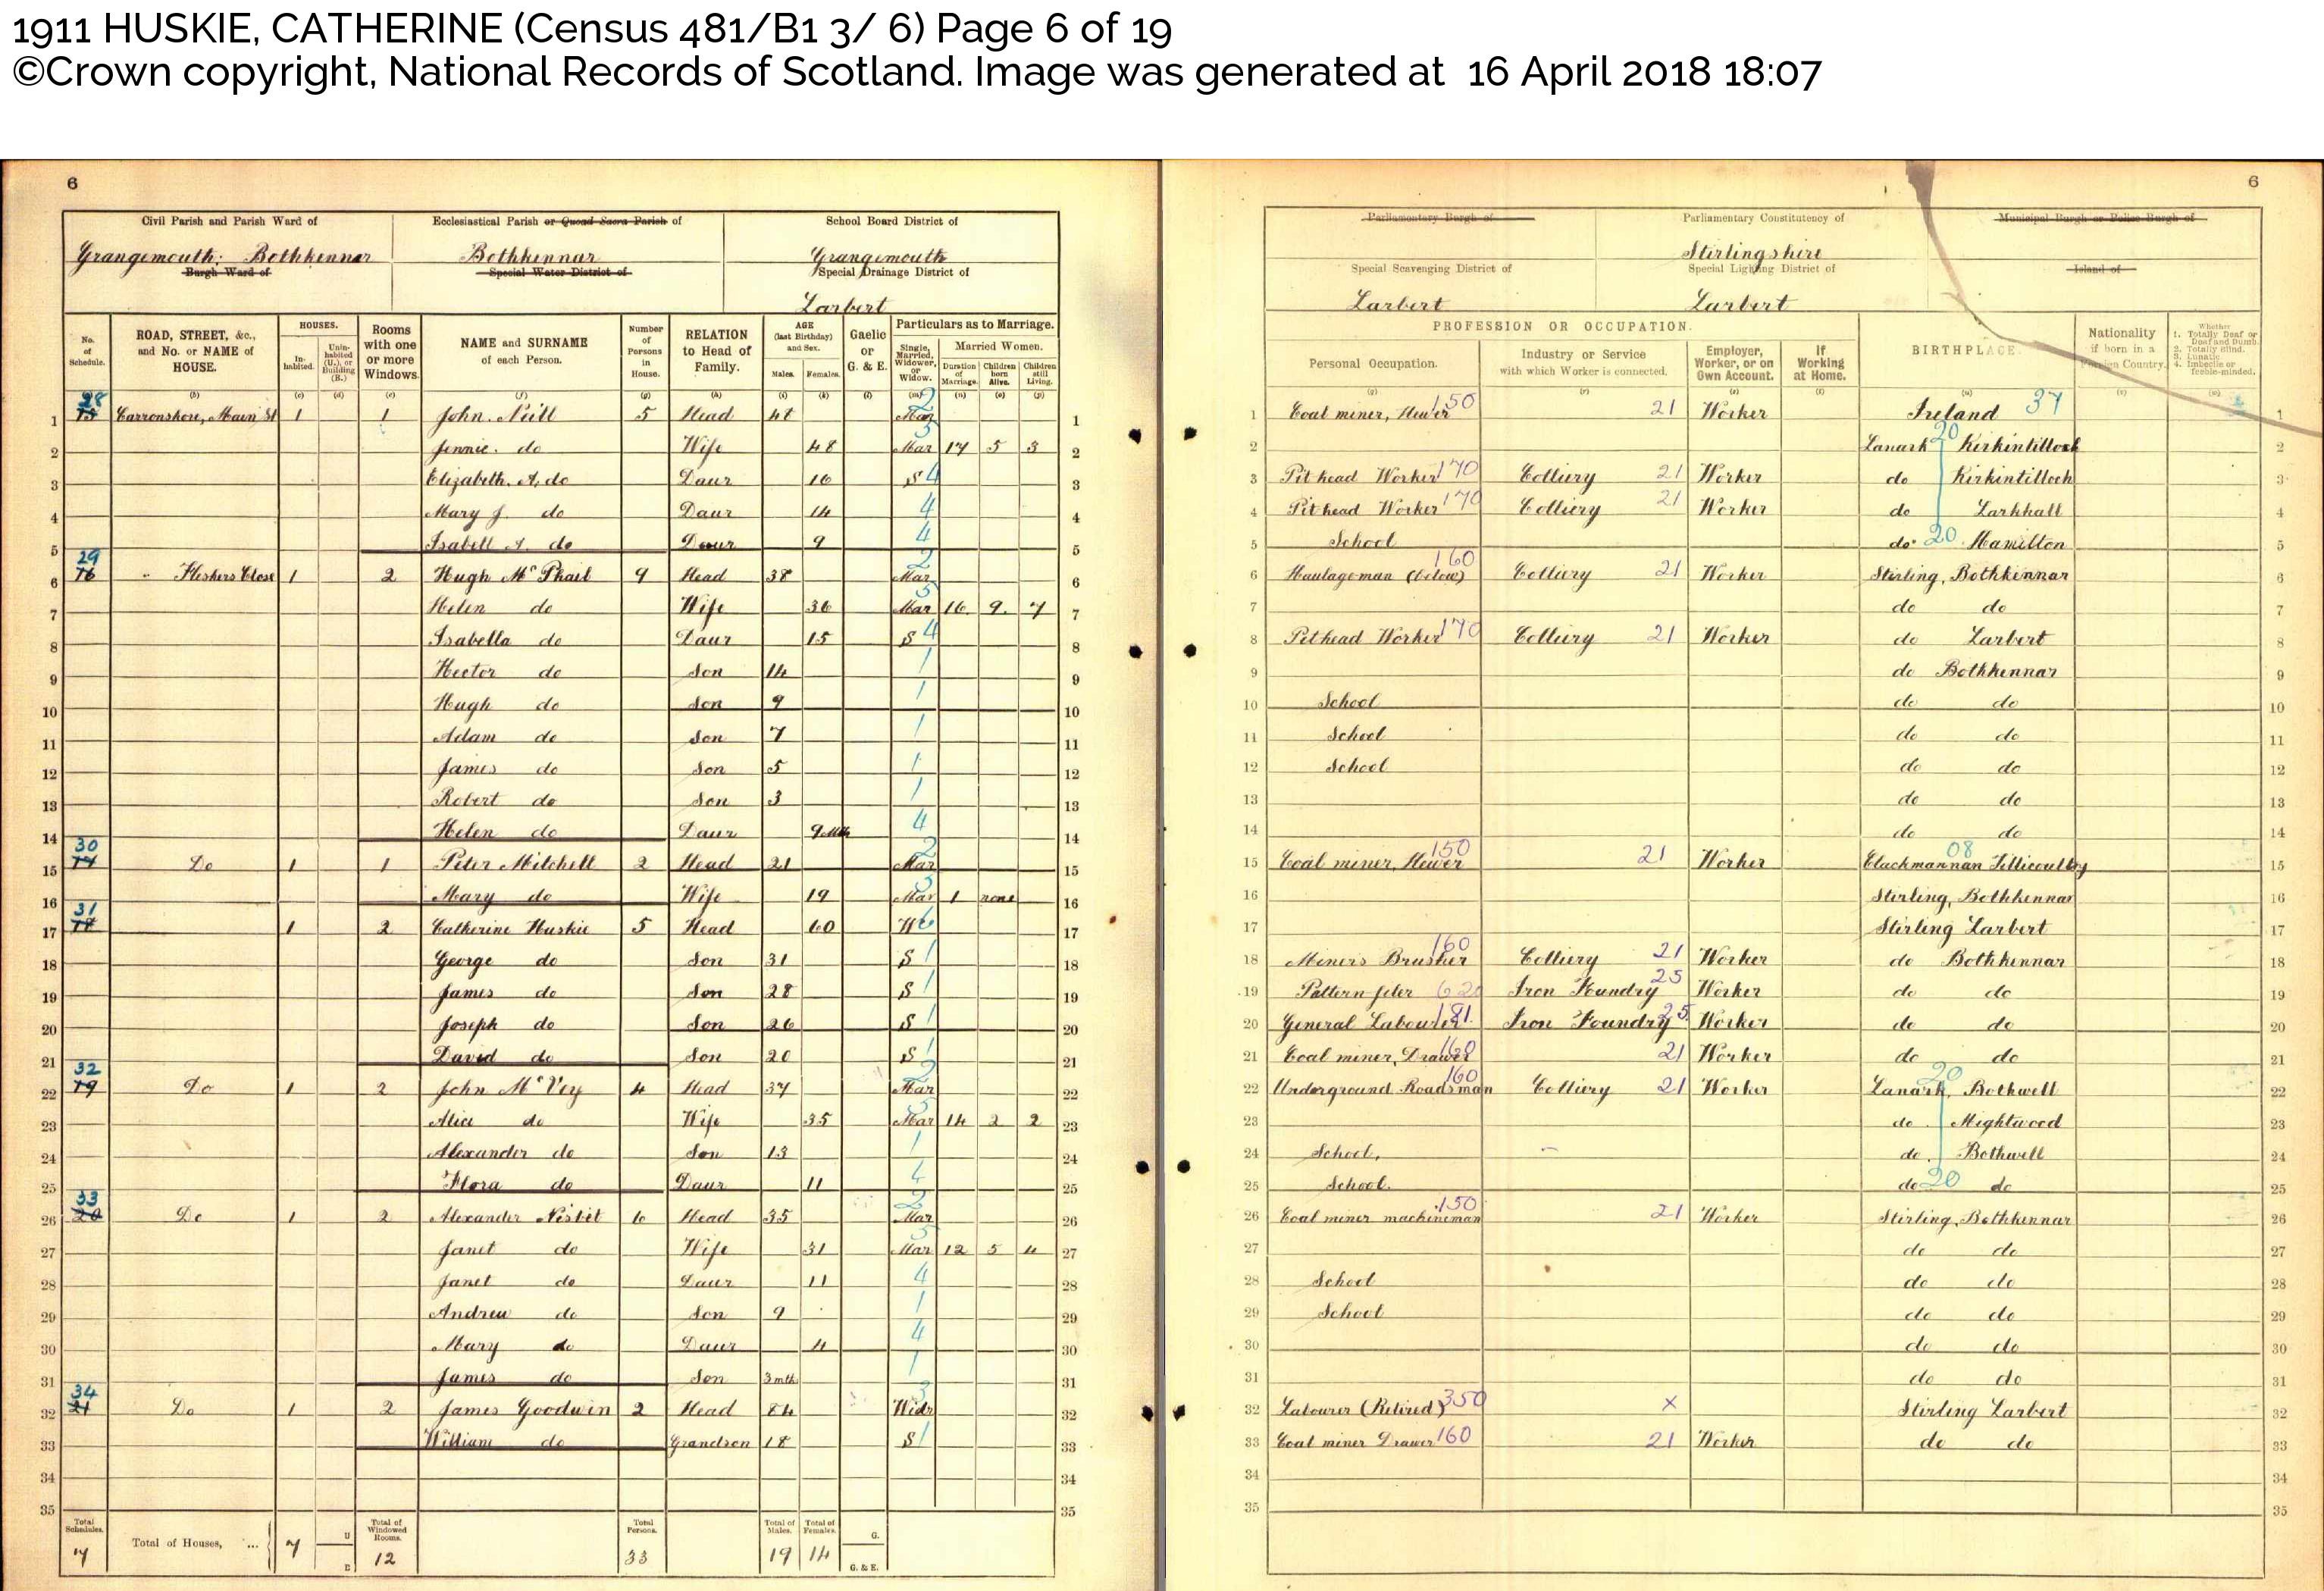 1911 HUSKIE, CATHERINE (Census 481/B1 3/ 6) Page 6 of 19
©Crown copyright, National Records of Scotland. Image was generated at 16 April 2018 18:07
6 6
Civil Parish and Parish Ward of Ecclesiastical Parish or Quoad Sacra Parish of School Board District of Parliamentary Burgh of Parliamentary Constitutency of Municipal Burgh or Police Burgh of
Grangemouth: Bothkennar Bothkennar Grangemouth Stirlingshire
Burgh Ward of Special Water District of Special Drainage District of Special Scavenging District of Special Lighting District of Island of
Larbert Larbert Larbert
No. of Schedule. ROAD, STREET, &c., and No. or NAME of HOUSE. HOUSES. Inhabited. Uninhabited (U.), or Building (B.) Rooms with one or more Windows. NAME and SURNAME of each Person. Number of Persons in House. RELATION to Head of Family. AGE (last Birthday) and Sex. Males. Females. Gaelic or G. & E. Particulars as to Marriage. Single, Married, Widower, or Widow. Married Women. Duration of Marriage. Children born Alive. Children still Living. PROFESSION OR OCCUPATION. Personal Occupation. Industry or Service with which Worker is connected. Employer, Worker, or on Own Account. If Working at Home. BIRTHPLACE. Nationality if born in a Foreign Country. Whether 1. Totally Deaf or Deaf and Dumb. 2. Totally Blind. 3. Lunatic. 4. Imbecile or feeble-minded.
(b) (c) (d) (e) (f) (g) (h) (i) (k) (l) (m) (n) (o) (p) (q) (r) (s) (t) (u) (v) (w)
1 28 15 Carronshore, Main St 1 1 John. Neill 5 Head 48 Mar 2 1 1 Coal miner, Hewer 150 21 Worker Ireland 37 1
2 Jennie. do Wife 48 Mar 3 17 5 3 2 2 Lanark 20 Kirkintilloch 2
3 Elizabeth. A. do Daur 16 S 4 3 3 Pit head Worker 170 Colliery 21 Worker do Kirkintilloch 3
4 Mary J. do Daur 14 4 4 4 Pit head Worker 170 Colliery 21 Worker do Larkhall 4
5 Isabell A. do Daur 9 4 5 5 School do 20 Hamilton 5
6 29 16 " Fleshers Close 1 2 Hugh McPhail 9 Head 38 Mar 2 6 6 Haulageman (below) 160 Colliery 21 Worker Stirling, Bothkennar 6
7 Helen do Wife 36 Mar 3 16 9. 7 7 7 do do 7
8 Isabella do Daur 15 S 4 8 8 Pithead Worker 170 Colliery 21 Worker do Larbert 8
9 Hector do Son 14 1 9 9 do Bothkennar 9
10 Hugh do Son 9 1 10 10 School do do 10
11 Adam do Son 7 1 11 11 School do do 11
12 James do Son 5 1 12 12 School do do 12
13 Robert do Son 3 1 13 13 do do 13
14 Helen do Daur 9 Mth 4 14 14 do do 14
15 30 17 Do 1 1 Peter Mitchell 2 Head 21 Mar 2 15 15 Coal miner, Hewer 150 21 Worker Clackmannan Tillicoultry 08 15
16 Mary do Wife 19 Mar 3 1 none 16 16 Stirling, Bothkennar 16
17 31 18 1 2 Catherine Huskie 5 Head 60 W 6 17 17 Stirling Larbert 17
18 George do Son 31 S 1 18 18 Miners Brusher 160 Colliery 21 Worker do Bothkennar 18
19 James do Son 28 S 1 19 19 Pattern filer 620 Iron Foundry 25 Worker do do 19
20 Joseph do Son 26 S 1 20 20 General Labourer 181 Iron Foundry 25 Worker do do 20
21 David do Son 20 S 1 21 21 Coal miner, Drawer 160 21 Worker do do 21
22 32 19 Do 1 2 John McVey 4 Head 37 Mar 2 22 22 Underground Roadsman 160 Colliery 21 Worker Lanark, 20 Bothwell 22
23 Alice do Wife 35 Mar 3 14 2 2 23 23 do 23
24 Alexander do Son 13 1 24 24 School, do Bothwell 24
25 Flora do Daur 11 4 25 25 School. do 20 do 25
26 33 20 Do 1 2 Alexander Nisbet 6 Head 35 Mar 2 26 26 Coal miner machineman 150 21 Worker Stirling, Bothkennar 26
27 Janet do Wife 31 Mar 3 12 5 4 27 27 do do 27
28 Janet do Daur 11 4 28 28 School do do 28
29 Andrew do Son 9 1 29 29 School do do 29
30 Mary do Daur 4 4 30 30 do do 30
31 James do Son 3 mth 1 31 31 do do 31
32 34 21 Do 1 2 James Goodwin 2 Head 84 Widr 3 32 32 Labourer (Retired) 350 × Stirling Larbert 32
33 William do Grandson 18 S 1 33 33 Coal miner Drawer 160 21 Worker do do 33
34 34 34 34
35 35 35 35
Total Schedules. 7 Total of Houses, ... 7 U B Total of Windowed Rooms. 12 Total Persons. 33 Total of Males. 19 Total of Females. 14 G. G. & E.